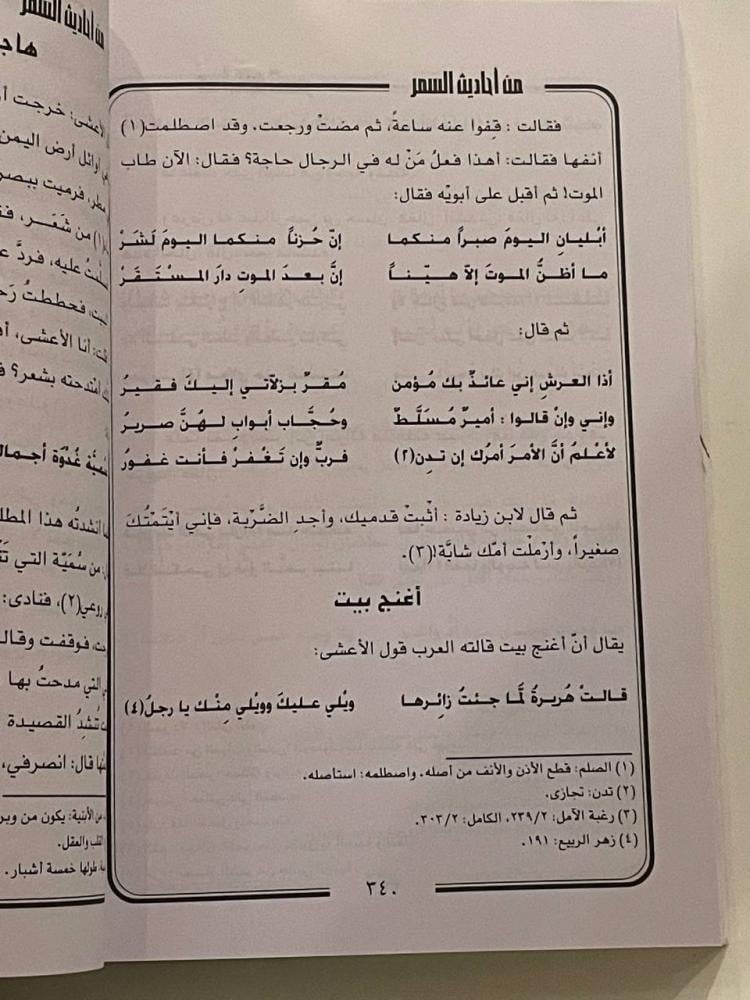 من أحاديث السمر
فقالت : قِفوا عنه ساعةً، ثم مضتْ ورجعت. وقد اصطلمت(١)
أنفها فقالت: أهذا فعلُ مَنْ له في الرجال حاجة؟ فقال: الآن طاب
الموت! ثم أقبل على أبويْه فقال:
أبْليانِ اليـومَ صبـراً منـكما إنّ حُـزناً منـكما اليـومَ لَشَـرْ
مـا أظـنُّ المـوتَ إلاّ هـيّـنـاً إنَّ بعـدَ المـوتِ دارَ المسْـتَـقَـرْ
ثم قال:
أذا العـرشِ إني عائـذٌ بك مُـؤمن مُـقـرٌّ بـزلاّتي إليـكَ فـقيـرُ
وإنـي وإنْ قالـوا : أميـرٌ مُسَـلَّـطٌ وحُـجَّـاب أبـوابٍ لـهُـنَّ صـريـرُ
لأعْـلـمُ أنَّ الأمـرَ أمرُك إن تـدِن(٢) فـربٌّ وإن تَـغْـفـرْ فـأنـت غفـورُ
ثم قال لابن زيادة : أثْبتْ قدميك، وأجدِ الضَّرْبة، فإني أيْتَمْتُكَ
صغيراً، وأرْملْت أمّك شابَّة!(٣).
أغنج بيت
يقال أنّ أغنج بيت قالته العرب قول الأعشى:
قالـتْ هُريرةُ لمَّا جئتُ زائِرهـا ويْلي عليكَ وويْلي مِنْـك يا رجلُ(٤)
(١) الصلم: قطع الأذن والأنف من أصله. واصطلمه: استأصله.
(٢) تدن: تجازى.
(٣) رغبة الآمل: ٢٣٩/٢، الكامل: ٣٠٣/٢.
(٤) زهر الربيع: ١٩١.
٣٤٠
من أحاديث السمر
الأعشى: خرجت
أوائل أرض اليمن
فرميت ببصر
(١) من شَعَـر، فقـ
عليه، فردَّ
فحططتُ
أنا الأعشى،
امتدحته بشعر؟
سُميَّة غُدْوَة أجمالـ
أنشدتُه هذا المطلـ
من سُمَيّة التي
(٢)، فنادى:
فوقفت وقالـ
التي مدحتُ بها
تُنشدُ القصيدة
قال: انصرفي،
من الأبنية: يكون من وبر
القلب والعقل.
طولها خمسة أشبار.